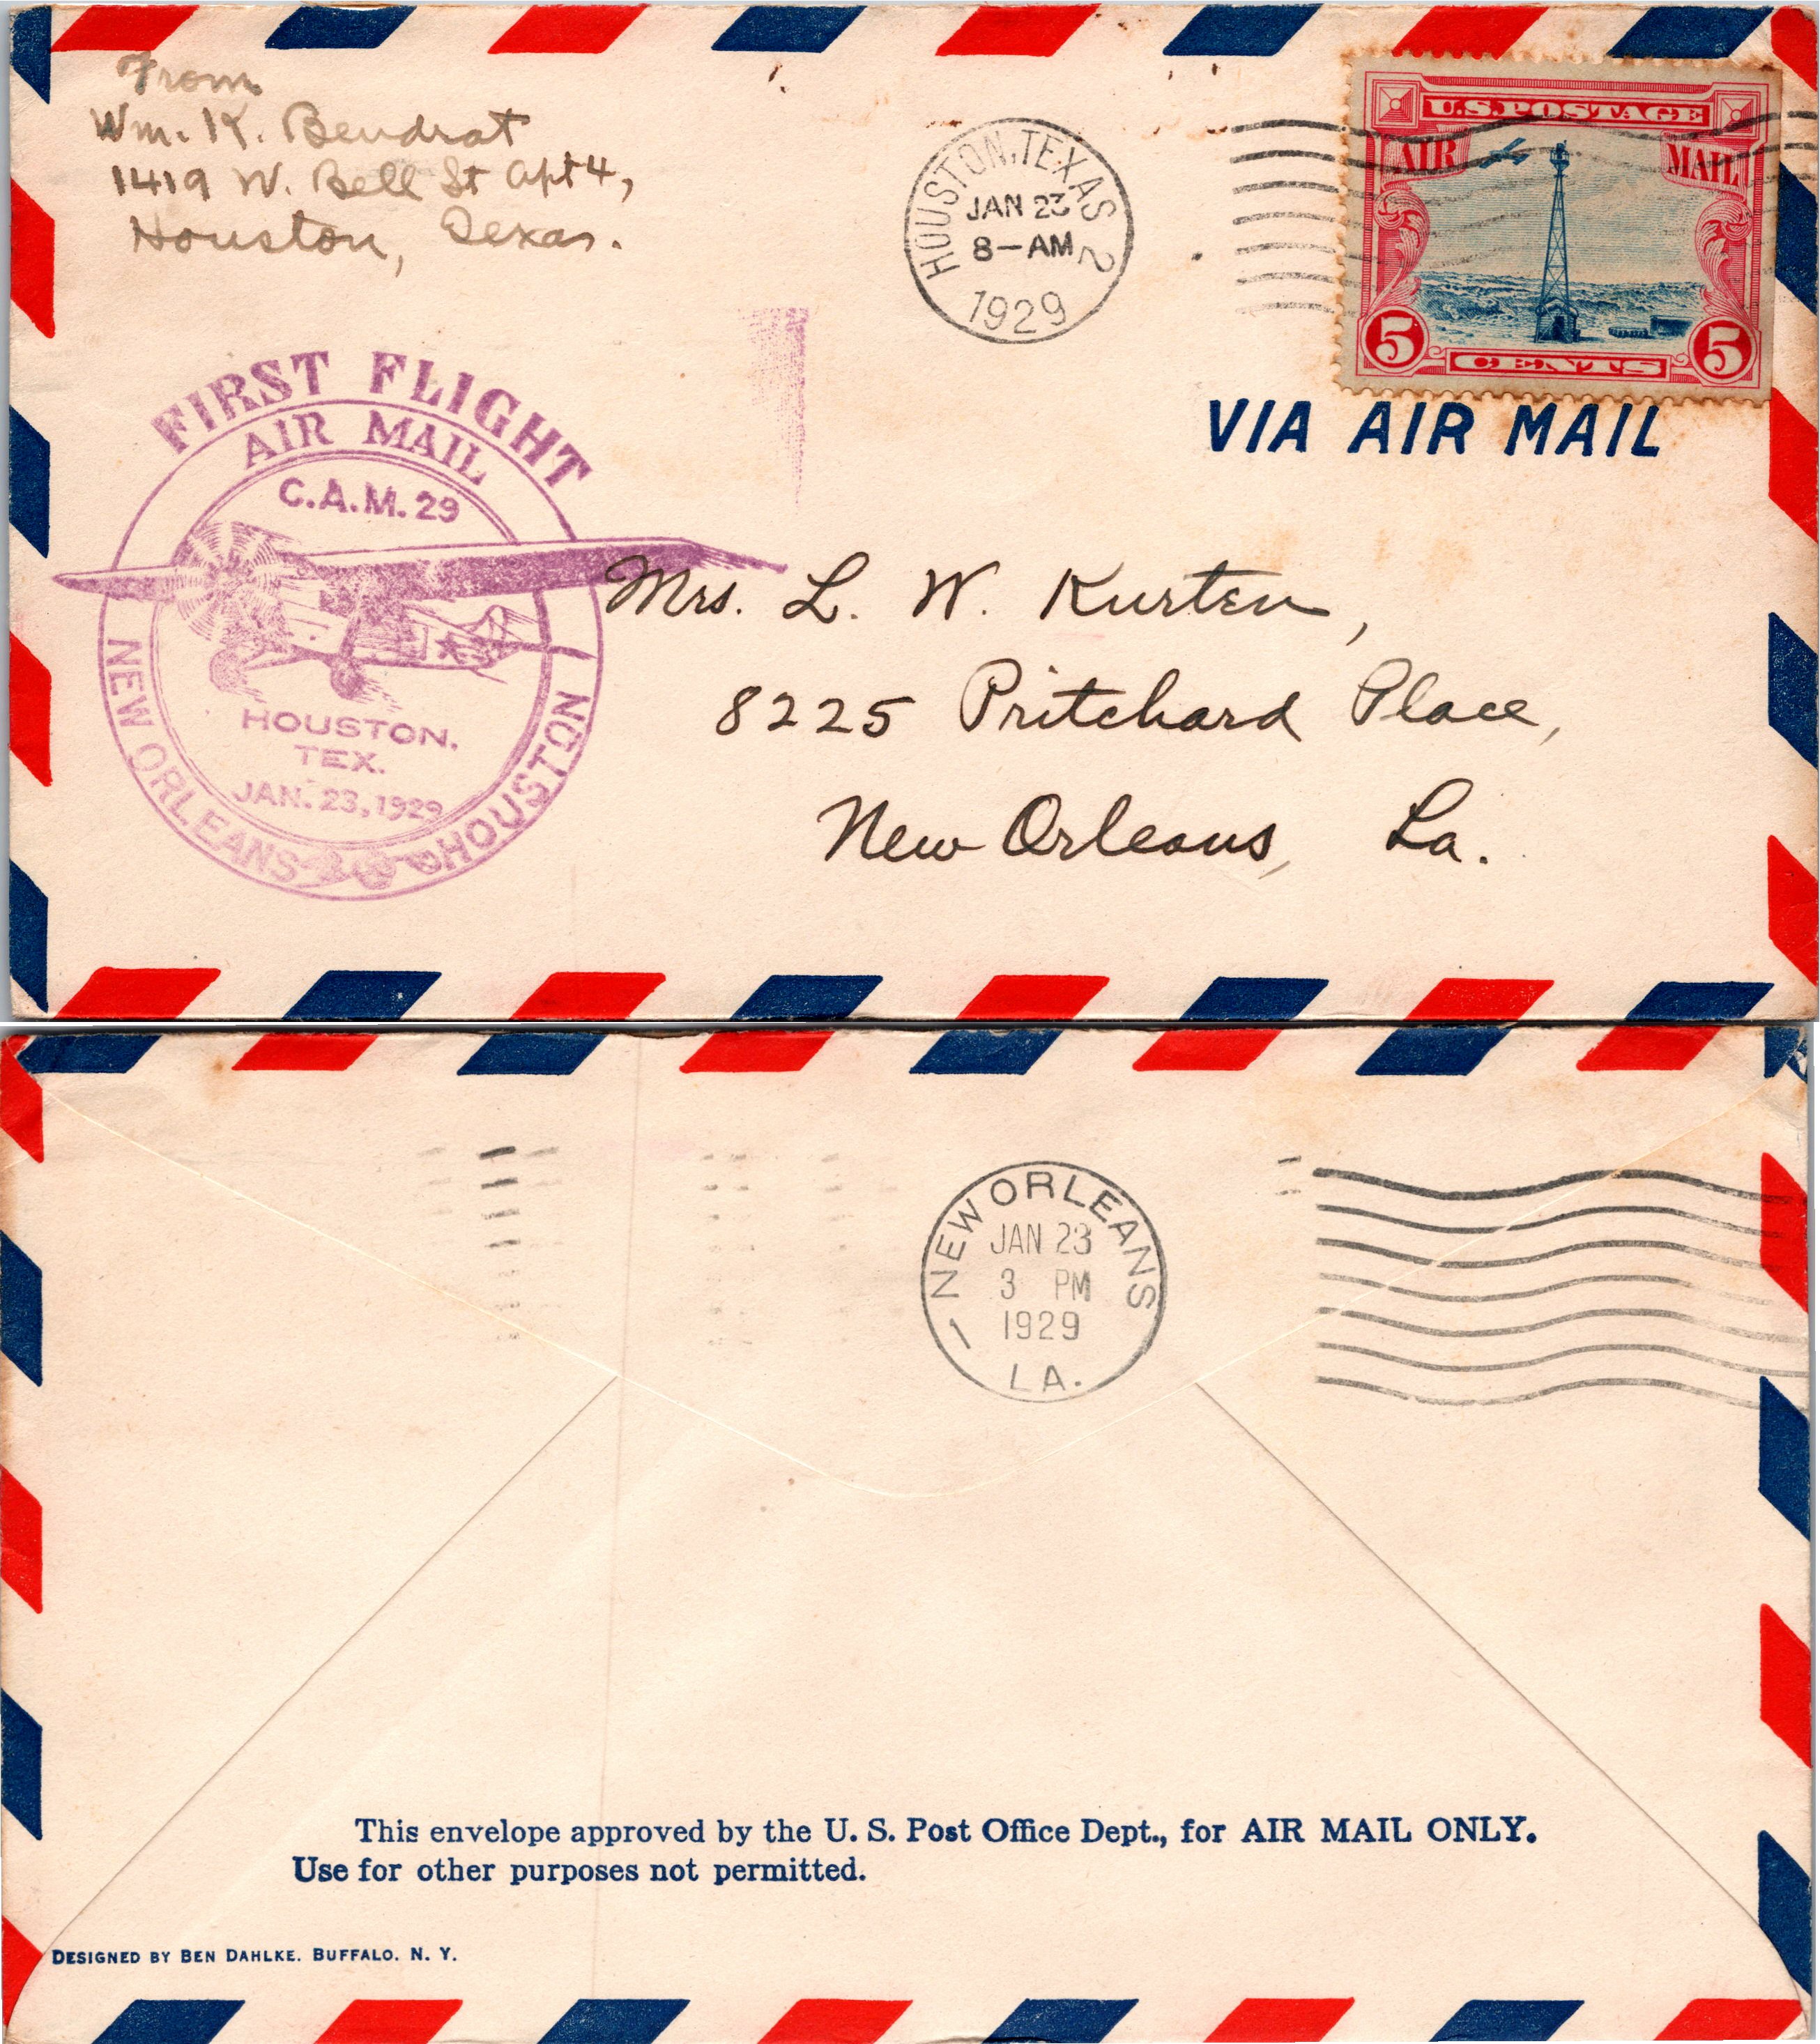 From
Wm. K. Bendrat
1419 W. Bell St Apt 4,
Houston, Texas.
HOUSTON, TEXAS 2
JAN 23
8-AM
1929
U.S. POSTAGE
AIR MAIL
5 CENTS 5
VIA AIR MAIL
FIRST FLIGHT
AIR MAIL
C.A.M. 29
HOUSTON.
TEX.
JAN. 23, 1929
NEW ORLEANS HOUSTON
Mrs. L. W. Kurten,
8225 Pritchard Place,
New Orleans, La.
NEW ORLEANS
JAN 23
3 PM
1929
1
LA.
This envelope approved by the U. S. Post Office Dept., for AIR MAIL ONLY.
Use for other purposes not permitted.
DESIGNED BY BEN DAHLKE. BUFFALO. N. Y.